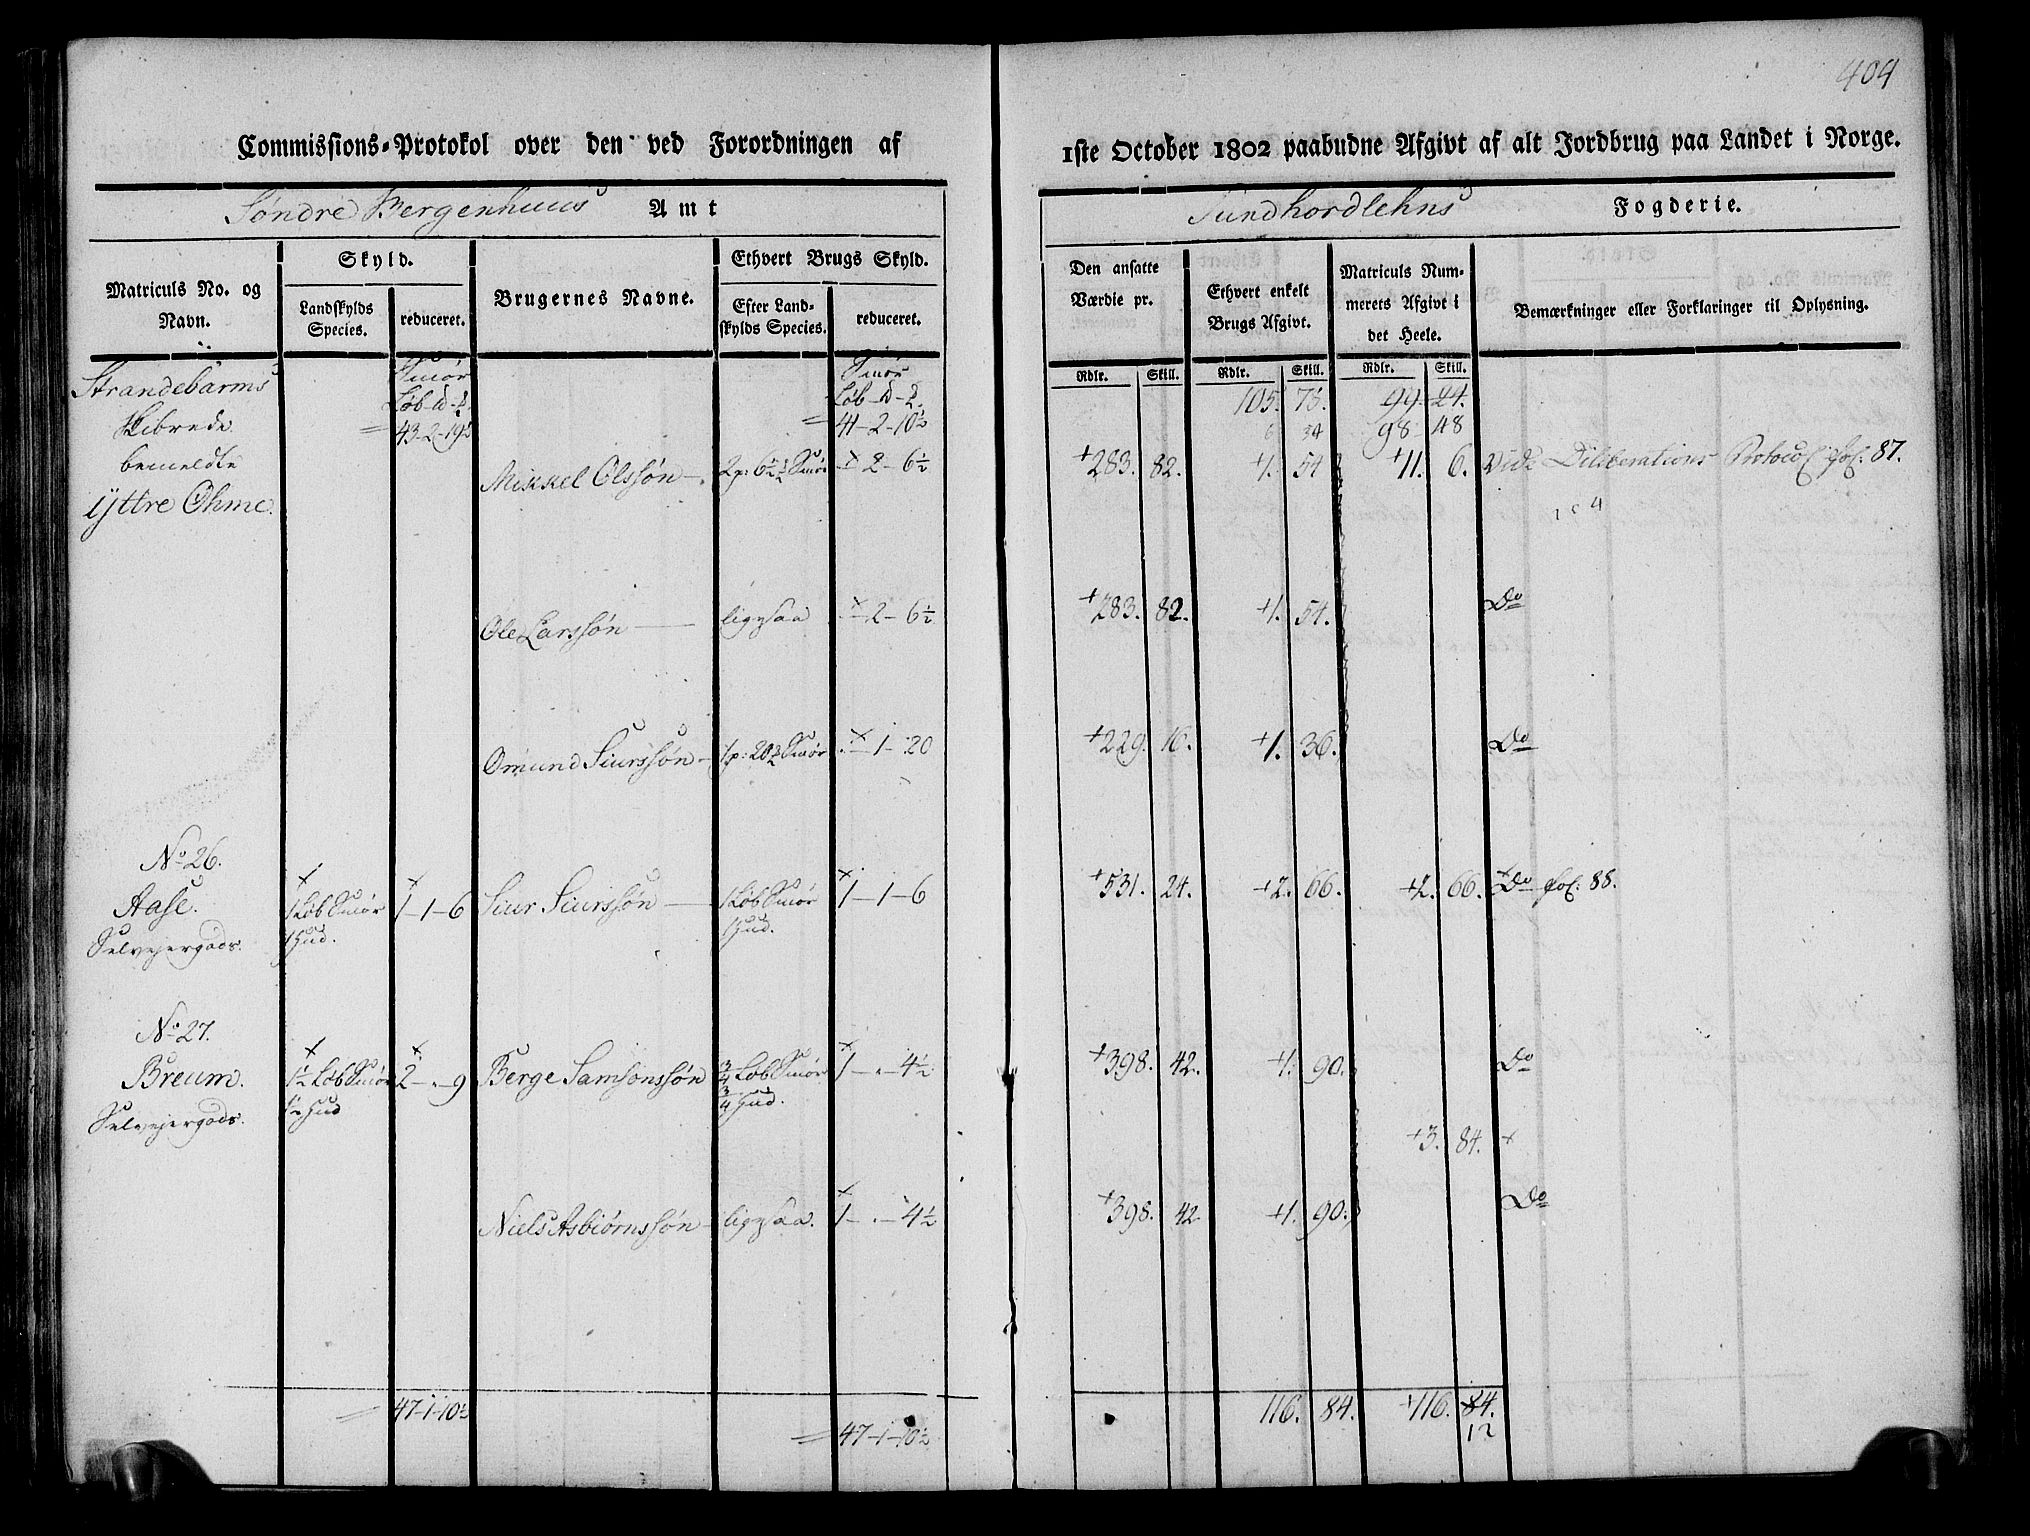 404
Commissions-Protokol over den ved Forordningen af
1ste October 1802 paabudne Afgivt af alt Jordbrug paa Landet i Norge.
Søndre Bergenhuus Amt
Sundhordlehns Fogderie.
Matriculs No. og Navn.
Skyld.
Landskylds Species.
reduceret.
Brugernes Navne.
Ethvert Brugs Skyld.
Efter Landskylds Species.
reduceret.
Den ansatte Værdie pr.
Ethvert enkelt Brugs Afgivt.
Matriculs Nummerets Afgivt i det Heele.
Bemærkninger eller Forklaringer til Oplysning.
Rdlr. Skill. Rdlr. Skill. Rdlr. Skill.
Strandebarms Smør Smør 105. 75. 99. 24.
Skibrede 43-2-19½ 41-2-10½ 98-48
bemeldte
ÿttre Ohme.
Mikkel Olssøn 2p: 6½ Smør 2-6½ +283. 82. +1. 54 +11. 6. Vide Deliberations Protocol fol: 87.
Ole Larssøn ligesaa 2-6½ +283. 82. +1. 54. Do
Omund Siurssøn 1p: 20½ Smør 1-20 +229. 16. +1. 36. Do
No 26.
Aase. 1 Løb Smør 1-1-6 Siur Siurssøn 1 Løb Smør 1-1-6 +531. 24. +2. 66. +2. 66. Do fol: 88.
Selvejergods. 1 Hud. 1 Hud.
No 27.
Breum. 1½ Løb Smør 2-.-9 Berge Samsonssøn ¾ Løb Smør 1-.-4½ +398. 42. +1. 90. Do
Selvejergods. 1½ Hud ¾ Hud.
+3. 84. +
Niels Asbiørnssøn ligesaa. 1-.-4½ +398. 42. +1. 90. Do
47-1-10½ 116. 84. +116. 84.
47-1-10½ 12